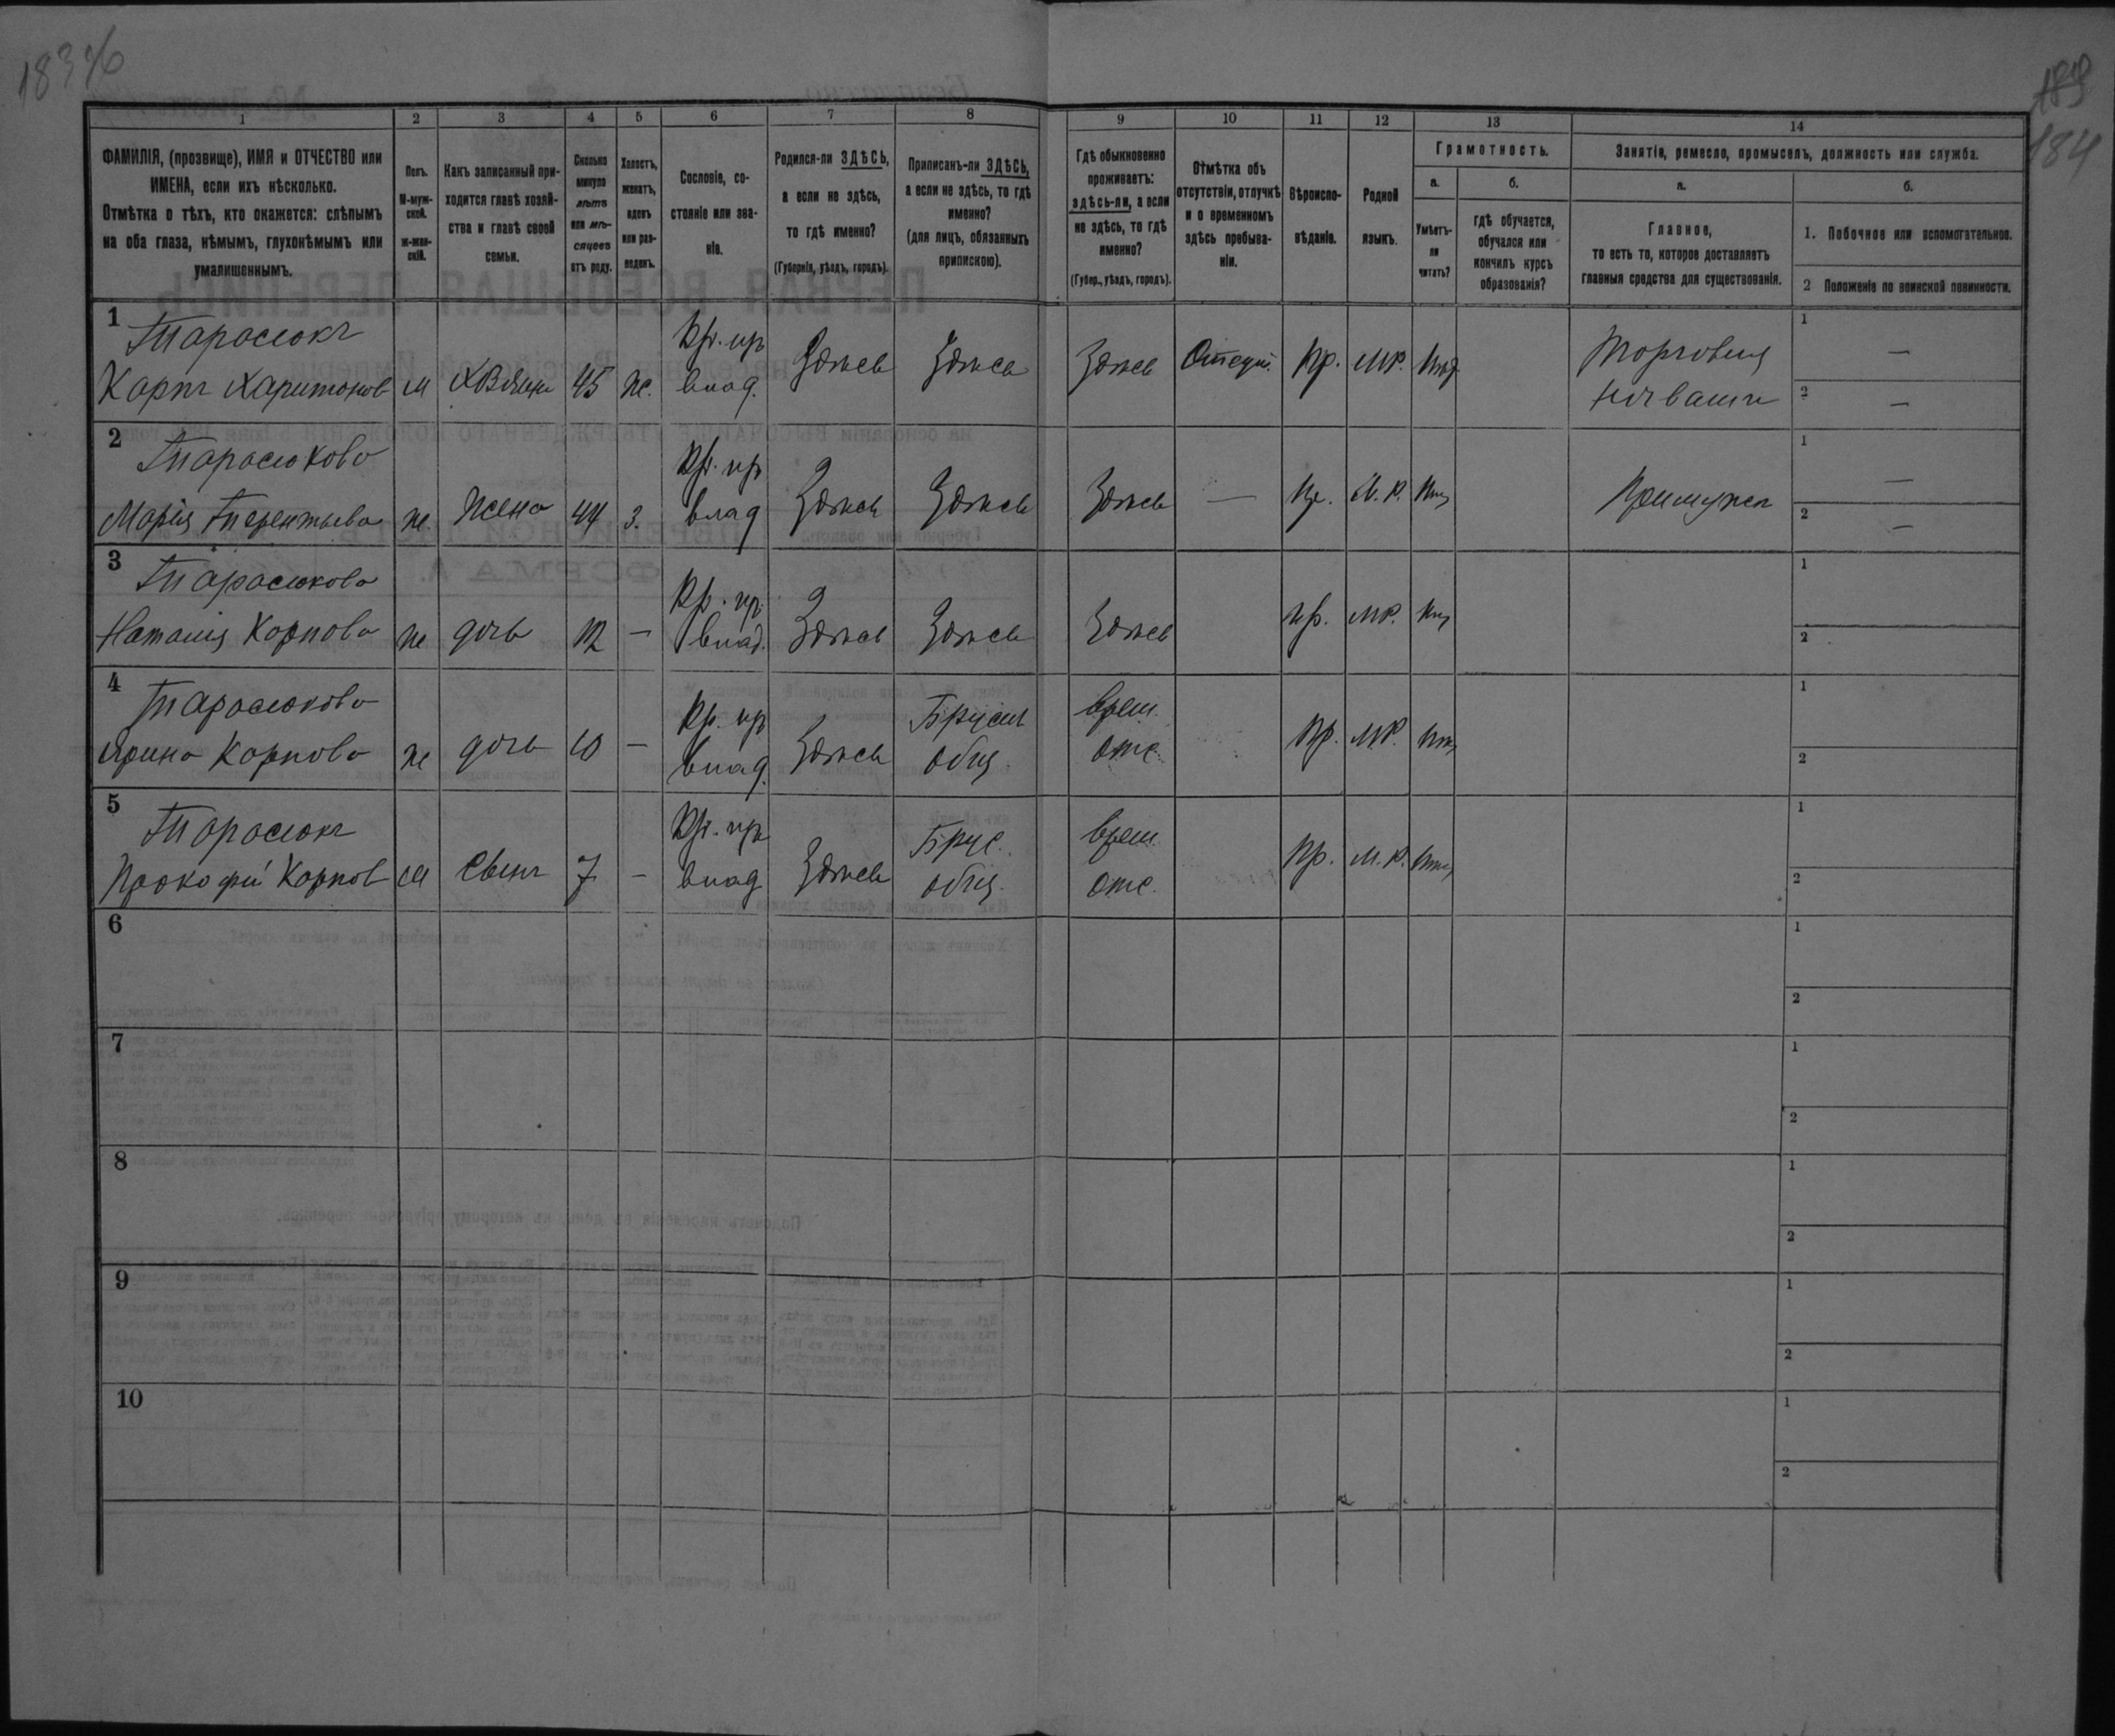 183 об
183
184
1
2
3
4
5
6
7
8
9
10
11
12
13
14
ФАМИЛІЯ, (прозвище), ИМЯ и ОТЧЕСТВО или
ИМЕНА, если ихъ нѣсколько.
Отмѣтка о тѣхъ, кто окажется: слѣпымъ
на оба глаза, нѣмымъ, глухонѣмымъ или
умалишеннымъ.
Полъ.
М-муж-
ской.
ж-жен-
скій.
Какъ записанный при-
ходится главѣ хозяй-
ства и главѣ своей
семьи.
Сколько
минуло
лѣтъ
или мѣ-
сяцевъ
отъ роду.
Холостъ,
женатъ,
вдовъ
или раз-
веденъ.
Сословіе, со-
стояніе или зва-
ніе.
Родился-ли ЗДѢСЬ,
а если не здѣсь,
то гдѣ именно?
(Губернія, уѣздъ, городъ).
Приписанъ-ли ЗДѢСЬ,
а если не здѣсь, то гдѣ
именно?
(для лицъ, обязанныхъ
припискою).
Гдѣ обыкновенно
проживаетъ:
здѣсь-ли, а если
не здѣсь, то гдѣ
именно?
(Губер., уѣздъ, городъ).
Отмѣтка объ
отсутствіи, отлучкѣ
и о временномъ
здѣсь пребыва-
ніи.
Вѣроиспо-
вѣданіе.
Родной
языкъ.
Грамотность.
а.
Умѣетъ-
ли
читать?
б.
гдѣ обучается,
обучался или
кончилъ курсъ
образованія?
Занятіе, ремесло, промыселъ, должность или служба.
а.
Главное,
то есть то, которое доставляетъ
главныя средства для существованія.
б.
1. Побочное или вспомогательное.
2 Положеніе по воинской повинности.
1
Тарасюкъ
Карпъ Харитоновъ м Хозяинъ 45 ж.
Кр. пр
влад.
Здѣсь Здѣсь Здѣсь Отсут. Пр. МР.
Торговця
1 —
2 —
2
Тарасюкова
Марія Терентьева ж. жена 44 з.
Кр. пр
влад
Здѣсь Здѣсь Здѣсь — Пр. М. Р.
При мужѣ
1 —
2 —
3
Тарасюкова
Наталія Карпова ж дочь 12 —
Кр. пр.
влад.
Здѣсь Здѣсь Здѣсь Пр. МР.
1
2
4
Тарасюкова
Ярина Карпова ж дочь 10 —
Кр. пр
влад.
Здѣсь
общ.
врем.
отс.
Пр. МР.
1
2
5
Тарасюкъ
Прокофій Карповъ м сынъ 7 —
Кр. пр
влад
Здѣсь
Брус.
общ.
врем.
отс.
Пр. М. Р.
1
2
6
1
2
7
1
2
8
1
2
9
1
2
10
1
2